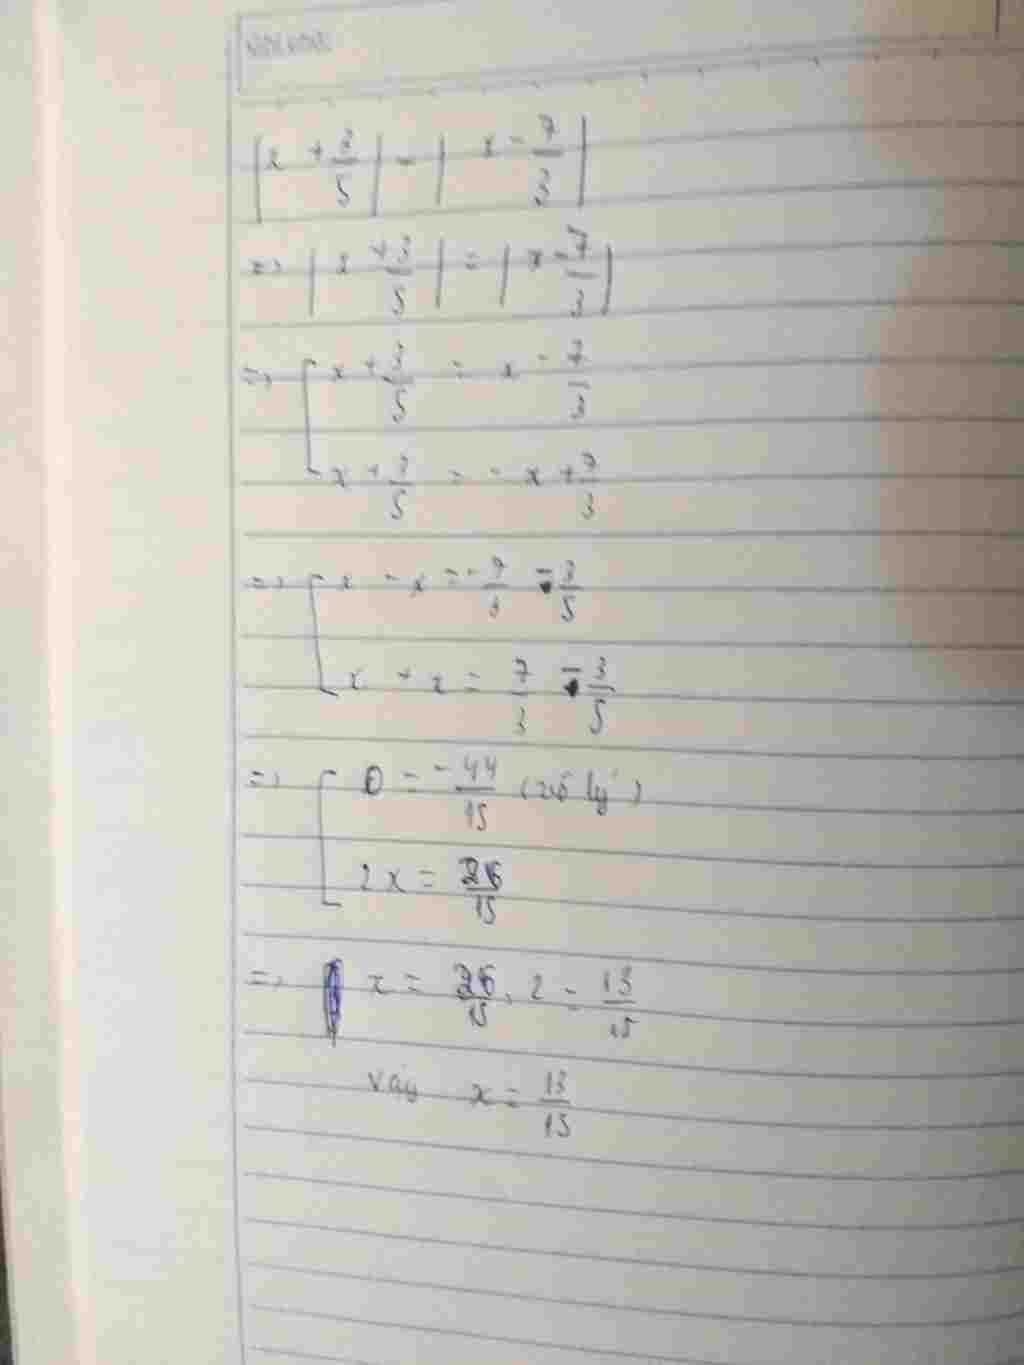 |x + 3/5| - |x - 7/3|
=> |x + 3/5| = |x - 7/3|
=> [ x + 3/5 = x - 7/3
x + 3/5 = - x + 7/3
=> [ x - x = - 7/3 - 3/5
x + x = 7/3 - 3/5
=> [ 0 = - 44/15 (vô lý)
2x = 26/15
=> x = 26/15 : 2 = 13/15
Vậy x = 13/15